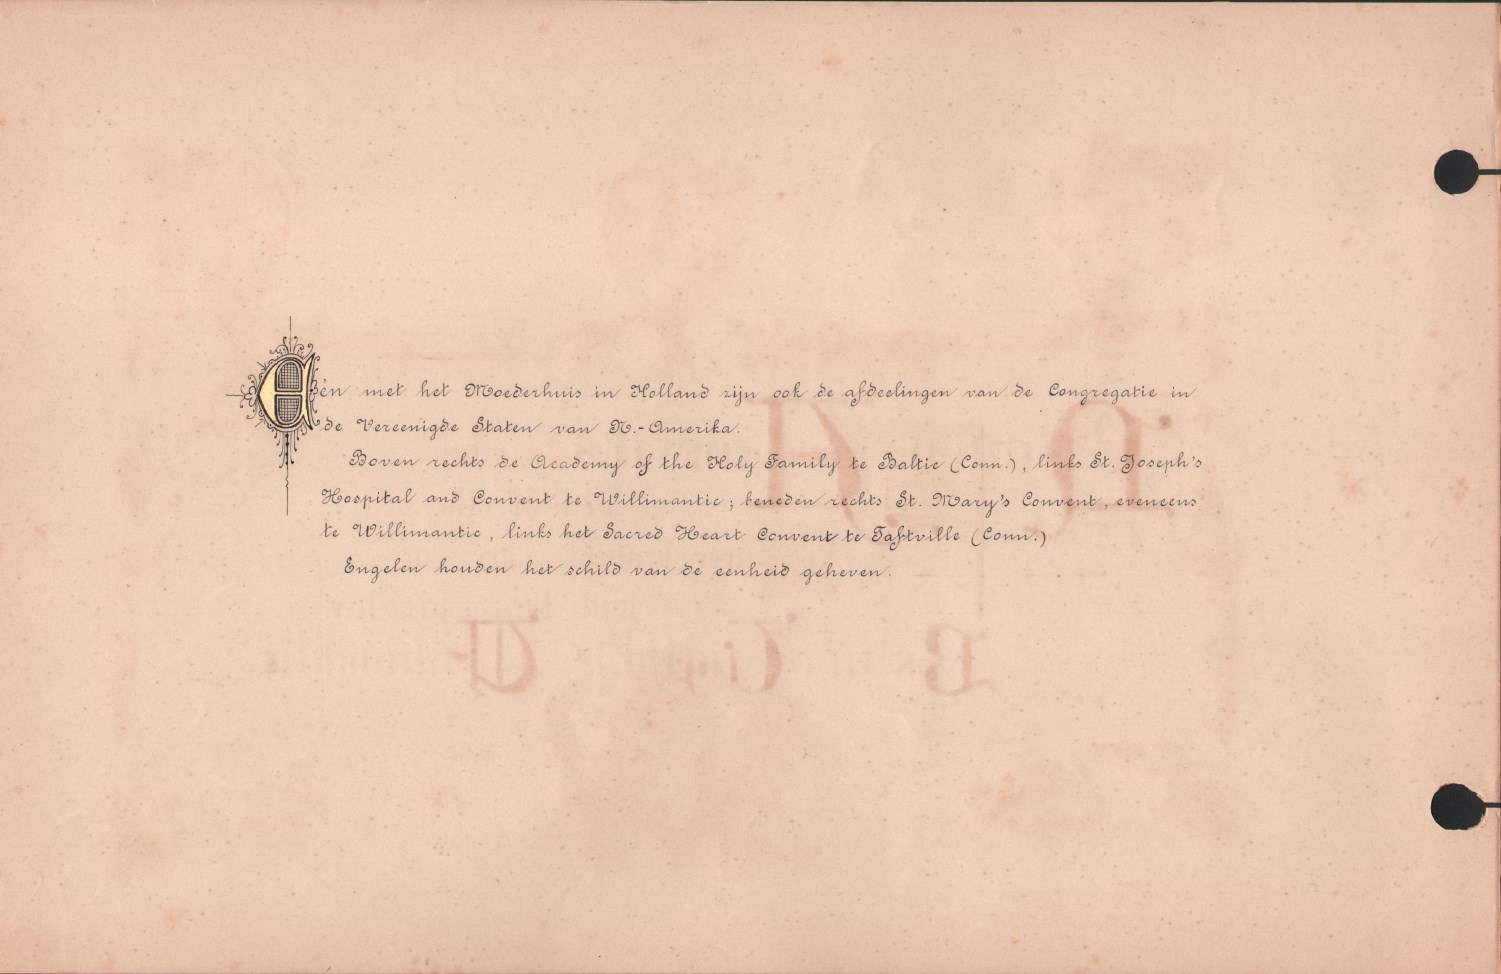 Eén met het Moederhuis in Holland zijn ook de afdeelingen van de Congregatie in
de Vereenigde Staten van N.-Amerika.
Boven rechts de Academy of the Holy Family te Baltic (Conn.), links St. Joseph's
Hospital and Convent te Willimantic; beneden rechts St. Mary's Convent, eveneens
te Willimantic, links het Sacred Heart Convent te Taftville (Conn.)
Engelen houden het schild van de eenheid geheven.